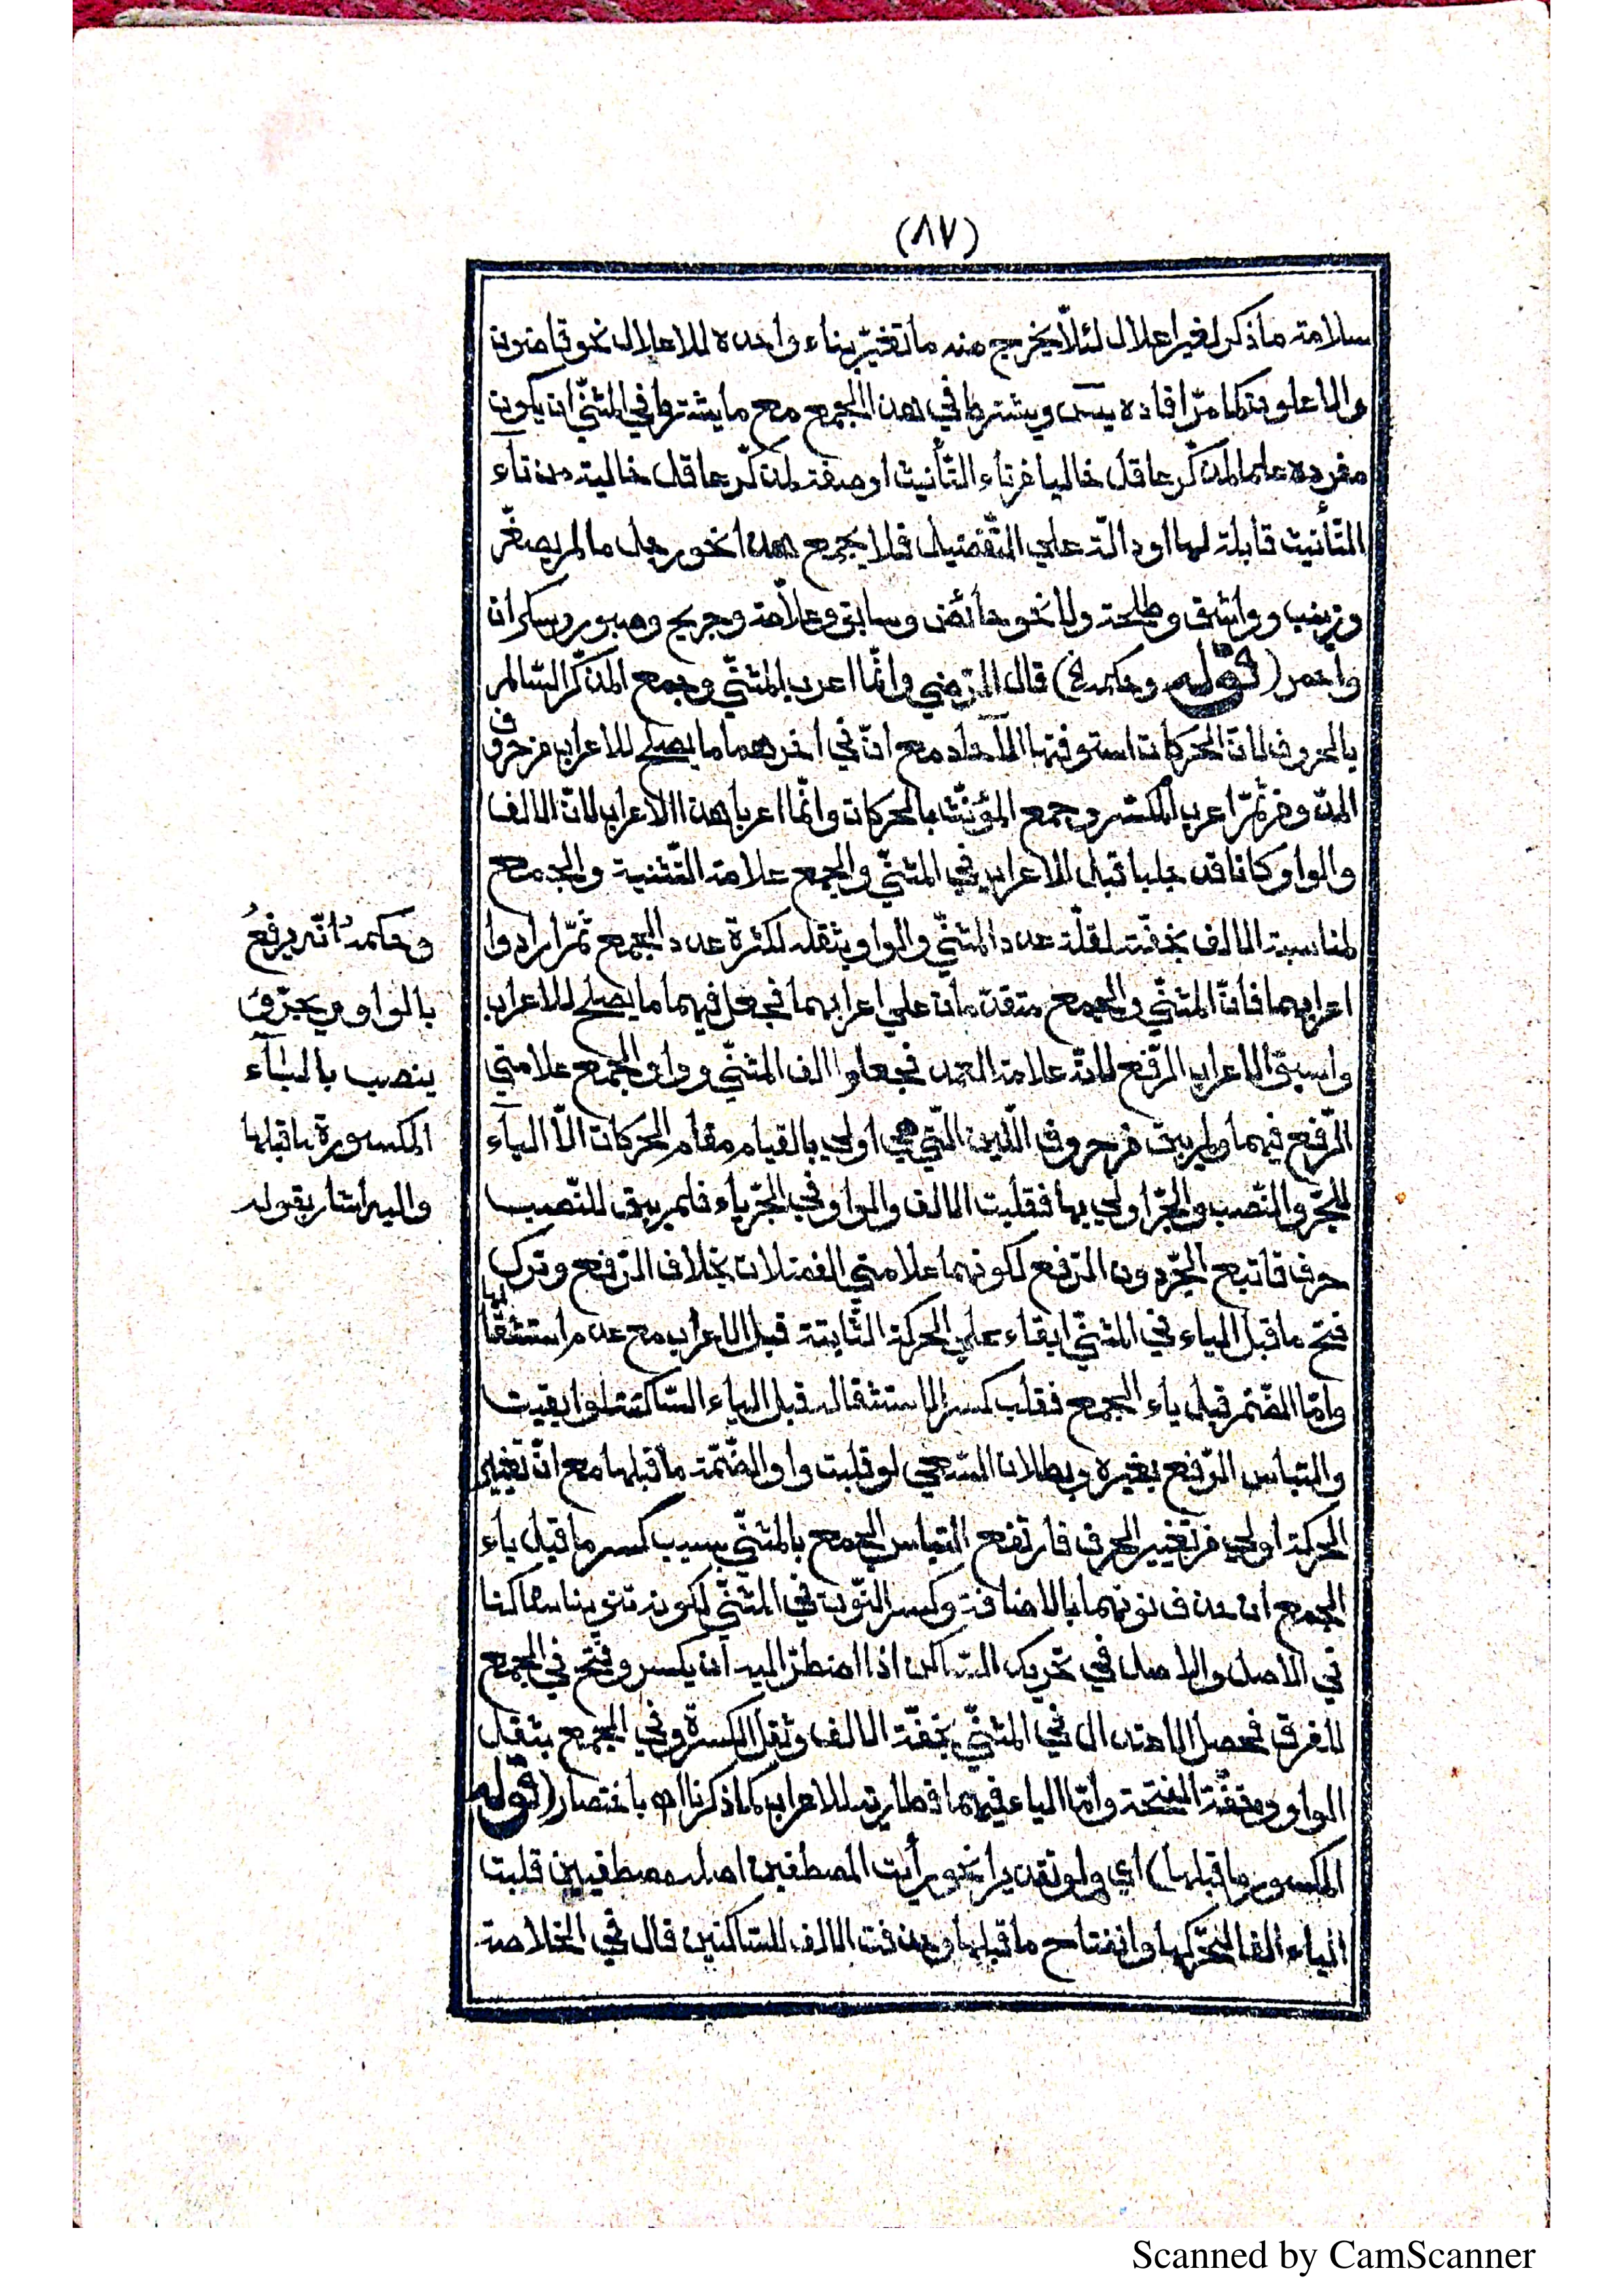 (٨٧)
سلامة ما ذكر لغير اعلال لئلّا يخرج منه ما تغيّر بناء واحده للاعلال نحو قاضون
والاعلون كما مرّ افاده يس ويشترط في هذا الجمع مع ما يشترط في المثنّى ان يكون
مفرده علما لمذكّر عاقل خاليا من تاء التّأنيث او صفة لمذكّر عاقل خالية من تاء
التّأنيث قابلة لها او دالّة على التّفضيل فلا يجمع هذا نحو رجل ما لم يصغّر
وزينب وواشق وطلحة ولا نحو حائض وسابق وعلّامة وجريح وصبور وسكران
واحمر (قوله وحكمه) قال الرّضي وانّما اعرب المثنّى وجمع المذكّر السّالم
بالحروف لانّ الحركات استوفتها الآحاد مع انّ في آخرهما ما يصلح للاعراب من حروف
المدّ ومن ثمّ اعرب المكسّر وجمع المؤنّث بالحركات وانّما اعربا هذا الاعراب لانّ الالف
والواو كانا قد جلبا قبل الاعراب في المثنّى والجمع علامة التّثنية والجمع
لمناسبة الالف بخفّته لقلّة عدد المثنّى والواو بثقله لكثرة عدد الجمع ثمّ ارادوا
اعرابهما فانّ المثنّى والجمع متقدّمان على اعرابهما فجعل فيهما ما يصلح للاعراب
واسبق الاعراب الرّفع لانّه علامة العمد فجعلوا الف المثنّى وواو الجمع علامتي
الرّفع فيهما ولم يبق من حروف اللّين الّتي هي اولى بالقيام مقام الحركات الّا الياء
للجرّ والنّصب والجرّ اولى بها فقلبت الالف والواو في الجرّ ياء فلم يبق للنّصب
حرف فاتبع الجرّ دون الرّفع لكونهما علامتي الفضلات بخلاف الرّفع وترك
فتح ما قبل الياء في المثنّى ابقاء على الحركة الثّابتة قبل الاعراب مع عدم استثقالها
وامّا الضّمّ قبل ياء الجمع فقلب كسرا لاستثقاله قبل الياء السّاكنة لو ابقيت
والتباس الرّفع بغيره وبطلان السّعي لو قلبت واوا لضمّة ما قبلها مع انّ تغيير
الحركة اولى من تغيير الحرف فارتفع التباس الجمع بالمثنّى بسبب كسر ما قبل ياء
الجمع ان حذف نونهما بالاضافة وكسر النّون في المثنّى لكونه تنوينا ساكنا
في الاصل والاصل في تحريك السّاكن اذا اضطرّ اليه ان يكسر وفتح في الجمع
للفرق فحصل الاعتدال في المثنّى بخفّة الالف وثقل الكسرة وفي الجمع بثقل
الواو وخفّة الفتحة وامّا الياء فيهما فطارية للاعراب كما ذكرنا اه باختصار (قوله
المكسور ما قبلها) اي ولو تقديرا نحو رأيت المصطفين اصله مصطفيين قلبت
الياء الفا لتحرّكها وانفتاح ما قبلها وحذفت الالف للسّاكنين قال في الخلاصة
وحكمهُ انّه يرفعُ
بالواو ويجرّ و
ينصب بالياء
المكسورة ما قبلها
واليه اشار بقوله
Scanned by CamScanner